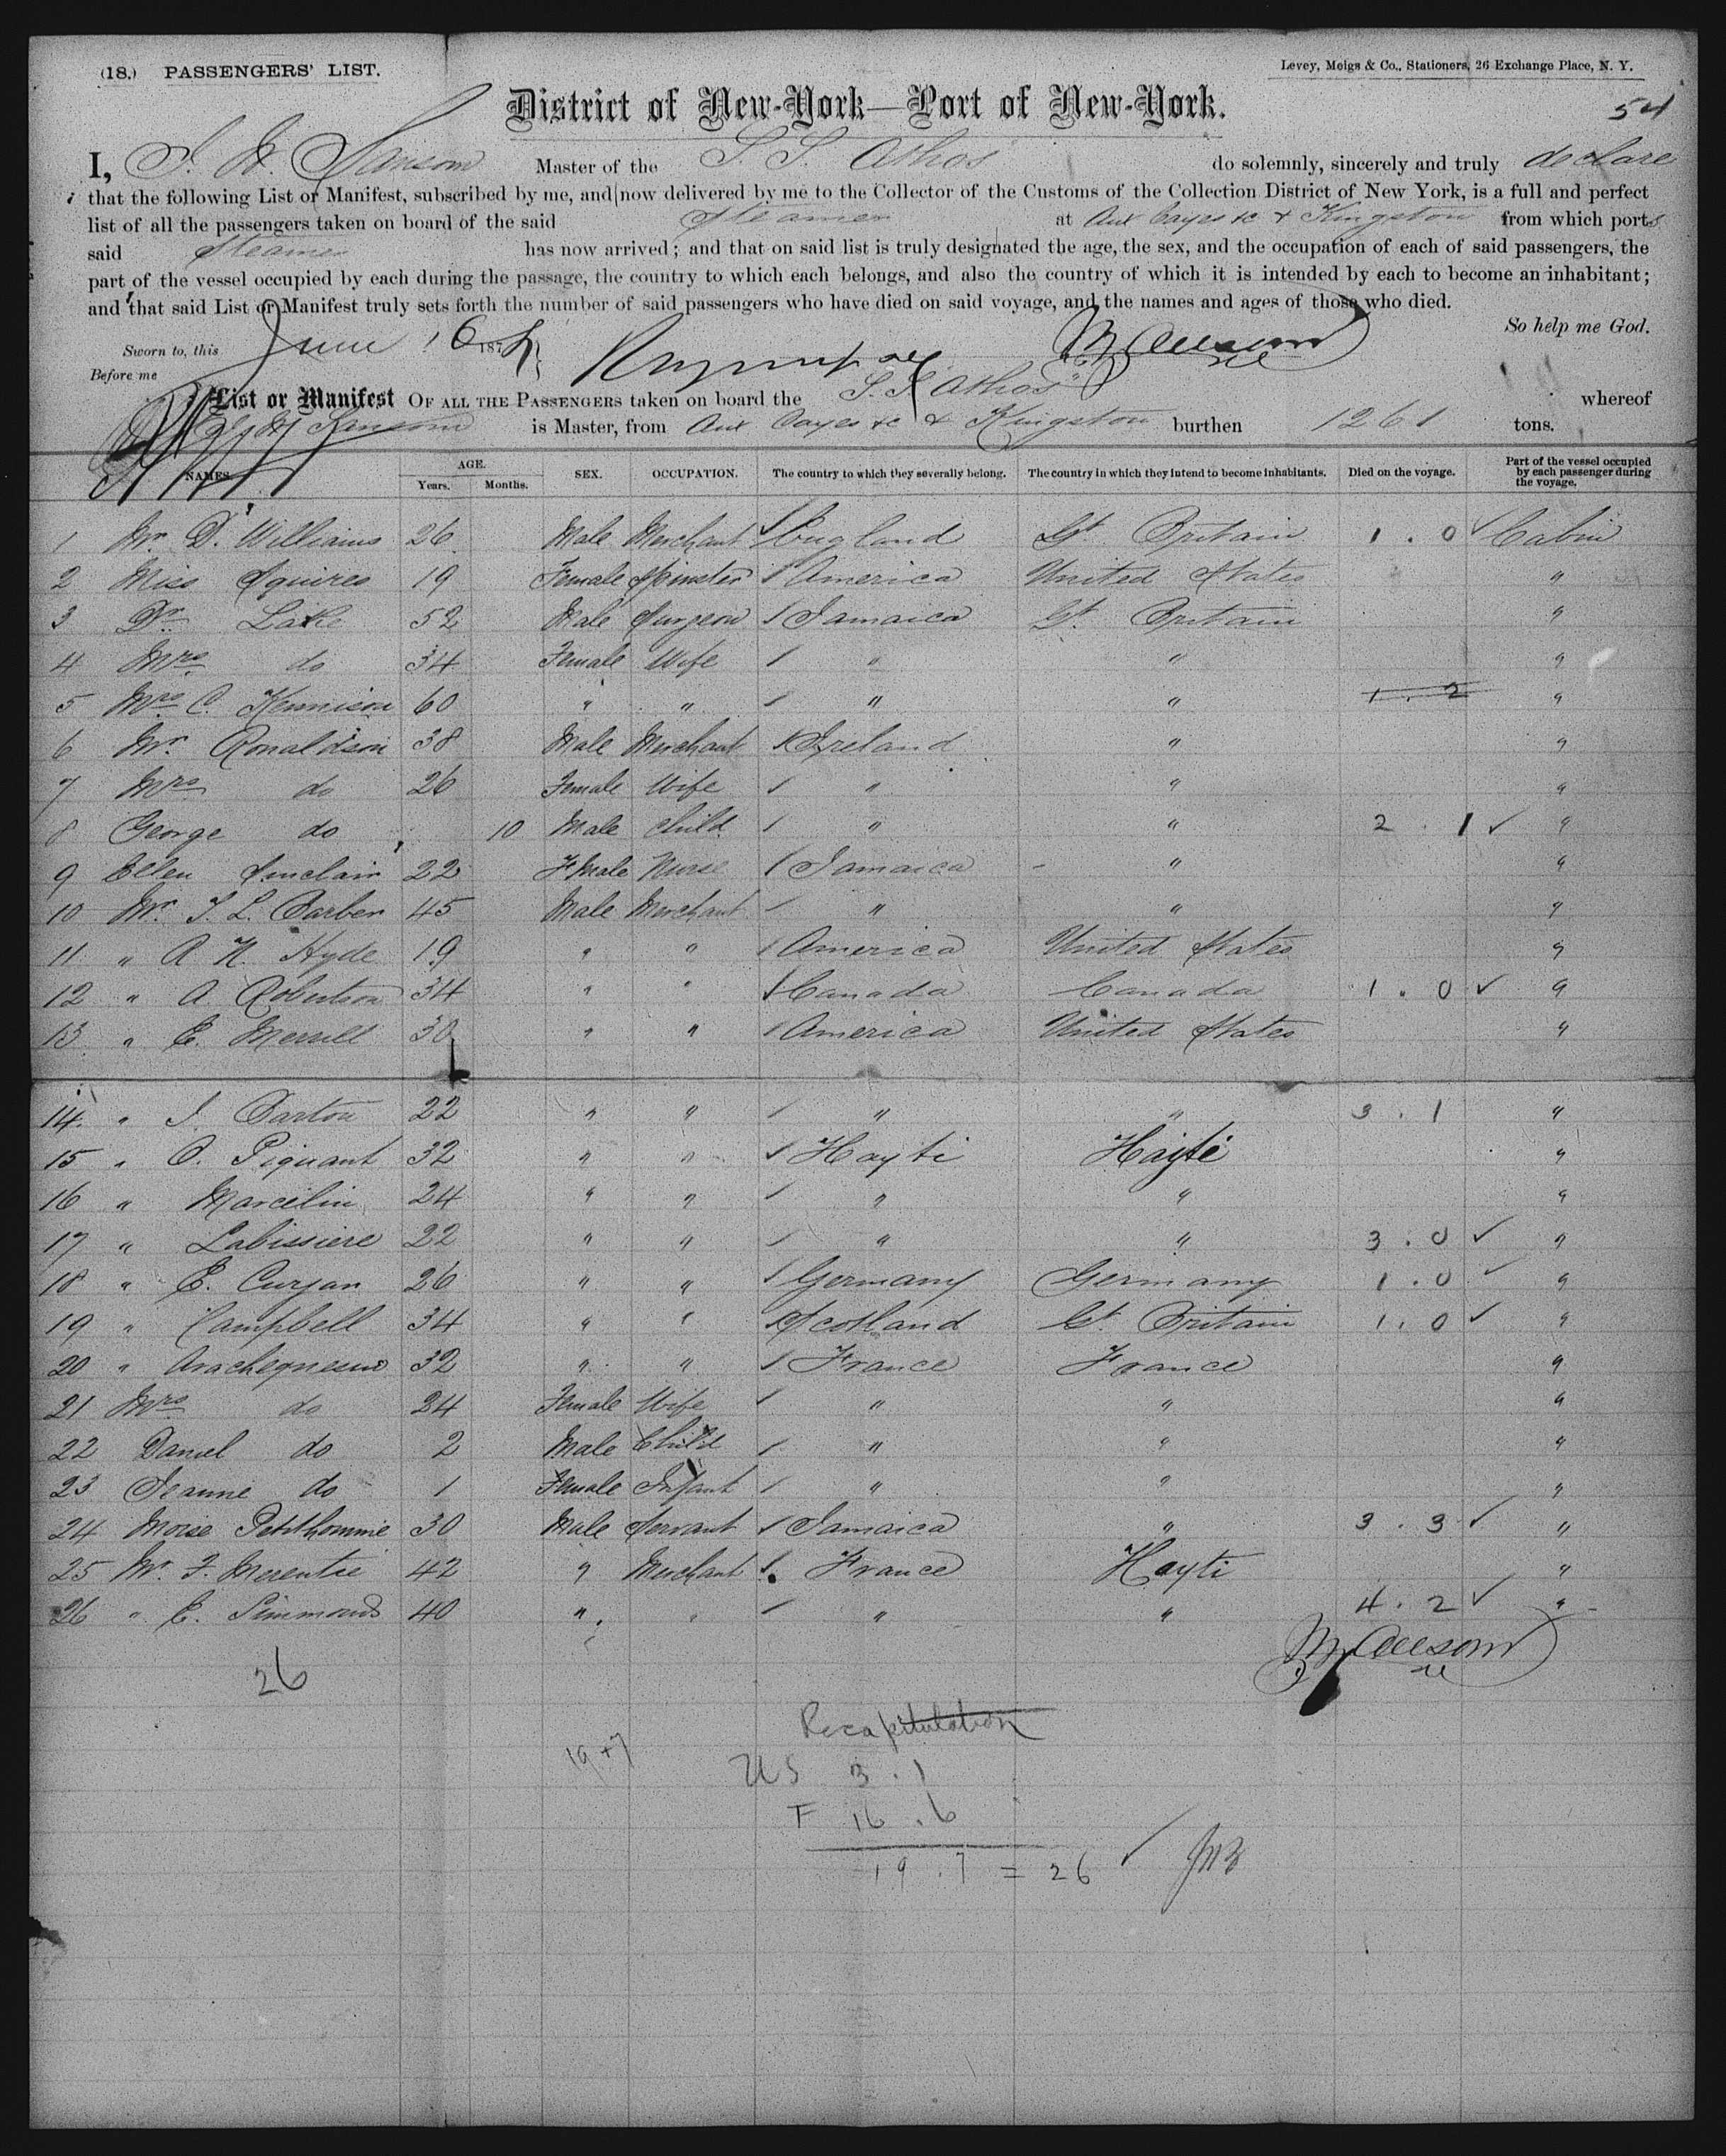 (18.) PASSENGERS' LIST.
Levey, Meigs & Co., Stationers, 26 Exchange Place, N. Y.
District of New-York—Port of New-York.
54
I, Sansom Master of the S. S. Athos do solemnly, sincerely and truly declare
that the following List or Manifest, subscribed by me, and now delivered by me to the Collector of the Customs of the Collection District of New York, is a full and perfect
list of all the passengers taken on board of the said Steamer at Aux Cayes &c & Kingston from which ports
said Steamer has now arrived; and that on said list is truly designated the age, the sex, and the occupation of each of said passengers, the
part of the vessel occupied by each during the passage, the country to which each belongs, and also the country of which it is intended by each to become an inhabitant;
and that said List or Manifest truly sets forth the number of said passengers who have died on said voyage, and the names and ages of those who died.
So help me God.
Sworn to, this June 16 187
Before me
List or Manifest OF ALL THE PASSENGERS taken on board the S. S. Athos whereof
Sansom is Master, from Aux Cayes &c & Kingston burthen 1261 tons.
NAMES. AGE. Years. Months. SEX. OCCUPATION. The country to which they severally belong. The country in which they intend to become inhabitants. Died on the voyage. Part of the vessel occupied by each passenger during the voyage.
1 Mr. D. Williams 26 Male Merchant England Gt. Britain 1 . 0 Cabin
2 Miss Squires 19 Female Spinster America United States "
3 Dr. Lake 52 Male Surgeon Jamaica Gt. Britain "
4 Mrs. do 34 Female Wife " " "
5 Mrs. C. Kennison 60 " " " " 1 . 2 "
6 Mr. Ronaldson 38 Male Merchant Ireland " "
7 Mrs. do 26 Female Wife " " "
8 George do 10 Male Child " " 2 . 1 "
9 Ellen Sinclair 22 Female Nurse Jamaica " "
10 Mr. J. L. Barber 45 Male Merchant " " "
11 " A. N. Hyde 19 " " America United States "
12 " A Robertson 34 " " Canada Canada 1 . 0 "
13 " E. Merrill 30 " " America United States "
14 " J. Barton 22 " " " " 3 . 1 "
15 " O. Piquant 32 " " Hayti Hayti "
16 " Marcelin 24 " " " " "
17 " Labissiere 22 " " " " 3 . 0 "
18 " E. Curjan 26 " " Germany Germany 1 . 0 "
19 " Campbell 34 " " Scotland Gt. Britain 1 . 0 "
20 " 32 " " France France "
21 Mrs. do 24 Female Wife " " "
22 Daniel do 2 Male Child " " "
23 Jeanne do 1 Female Infant " " "
24 Moise Petithomme 30 Male Servant Jamaica " 3 . 3 "
25 Mr. F. Merentie 42 " Merchant France Hayti "
26 " E. Simmonds 40 " " " " 4 . 2 "
26
Recapitulation
19 + 7
US 3 . 1
F 16 . 6
19 . 7 = 26